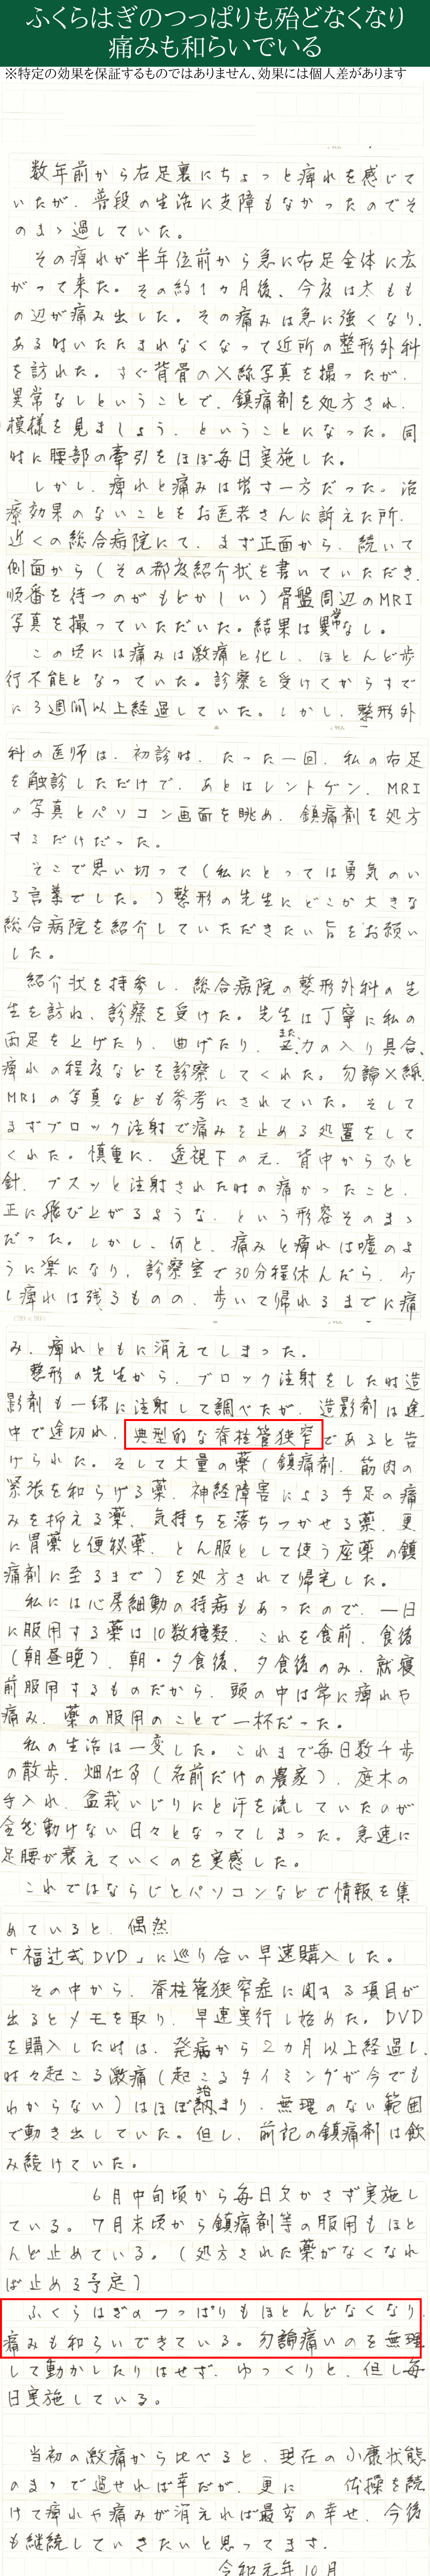 ふくらはぎのつっぱりも殆どなくなり
痛みも和らいでいる
※特定の効果を保証するものではありません、効果には個人差があります
数年前から右足裏にちょっと痺れを感じて
いたが、普段の生活に支障もなかったのでそ
のまゝ過していた。
その痺れが半年位前から急に右足全体に広
がって来た。その約1カ月後、今度は太もも
の辺が痛み出した。その痛みは急に強くなり、
ある時いたたまれなくなって近所の整形外科
を訪れた。すぐ背骨のX線写真を撮ったが、
異常なしということで、鎮痛剤を処方され、
模様を見ましょう、ということになった。同
時に腰部の牽引をほぼ毎日実施した。
しかし、痺れと痛みは増す一方だった。治
療効果のないことをお医者さんに訴えた所、
近くの総合病院にて、まず正面から、続いて
側面から(その都度紹介状を書いていただき、
順番を待つのがもどかしい)骨盤周辺のMRI
写真を撮っていただいた。結果は異常なし。
この頃には痛みは激痛と化し、ほとんど歩
行不能となっていた。診察を受けてからすで
に3週間以上経過していた。しかし、整形外
科の医師は、初診時、たった一回、私の右足
を触診しただけで、あとはレントゲン、MRI
の写真とパソコン画面を眺め、鎮痛剤を処方
するだけだった。
そこで思い切って(私にとっては勇気のい
る言葉でした。)整形の先生にどこか大きな
総合病院を紹介していただきたい旨をお願い
した。
紹介状を持参し、総合病院の整形外科の先
生を訪ね、診察を受けた。先生は丁寧に私の
両足を上げたり、曲げたり、また力の入り具合、
痺れの程度などを診察してくれた。勿論X線、
MRIの写真なども参考にされていた。そして
まずブロック注射で痛みを止める処置をして
くれた。慎重に、透視下の元、背中からひと
針、ブスッと注射された時の痛かったこと、
正に飛び上がるような、という形容そのまゝ
だった。しかし、何と、痛みと痺れは嘘のよ
うに楽になり、診察室で30分程休んだら、少
し痺れは残るものの、歩いて帰れるまでに痛
み、痺れともに消えてしまった。
整形の先生から、ブロック注射をした時造
影剤も一緒に注射して調べたが、造影剤は途
中で途切れ、典型的な脊柱管狭窄であると告
げられた。そして大量の薬(鎮痛剤、筋肉の
緊張を和らげる薬、神経障害による手足の痛
みを抑える薬、気持ちを落ちつかせる薬、更
に胃薬と便秘薬、とん服として使う座薬の鎮
痛剤に至るまで)を処方されて帰宅した。
私には心房細動の持病もあったので、一日
に服用する薬は10数種類、これを食前、食後
(朝昼晩)、朝・夕食後、夕食後のみ、就寝
前服用するものだから、頭の中は常に痺れや
痛み、薬の服用のことで一杯だった。
私の生活は一変した。これまで毎日数千歩
の散歩、畑仕事(名前だけの農家)、庭木の
手入れ、盆栽いじりにと汗を流していたのが
全然動けない日々となってしまった。急速に
足腰が衰えていくのを実感した。
これではならじとパソコンなどで情報を集
めていると、偶然
「福辻式DVD」に巡り合い早速購入した。
その中から、脊柱管狭窄症に関する項目が
出るとメモを取り、早速実行し始めた。DVD
を購入した時は、発病から2カ月以上経過し、
時々起こる激痛(起こるタイミングが今でも
わからない)はほぼ治まり、無理のない範囲
で動き出していた。但し、前記の鎮痛剤は飲
み続けていた。
6月中旬頃から毎日欠かさず実施し
ている。7月末頃から鎮痛剤等の服用もほと
んど止めている。(処方された薬がなくなれ
ば止める予定)
ふくらはぎのつっぱりもほとんどなくなり、
痛みも和らいできている。勿論痛いのを無理
して動かしたりはせず、ゆっくりと、但し毎
日実施している。
当初の激痛から比べると、現在の小康状態
のまゝで過せれば幸だが、更に 体操を続
けて痺れや痛みが消えれば最高の幸せ、今後
も継続していきたいと思ってます。
令和元年10月